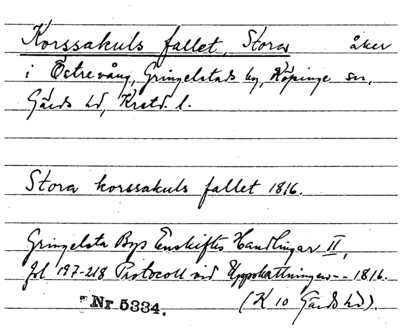 Korssakuls fallet, Stora åker
i Östrevång, Gringelstads by, Köpinge sn,
Gärds hd, Krstd. l.
Stora korssakuls fallet 1816.
Gringelsta Bys Enskiftes Handlingar II,
fol 197-218 Protocoll vid Uppskattningen -- 1816.
Nr. 5334. (K 10 Gärds hd).